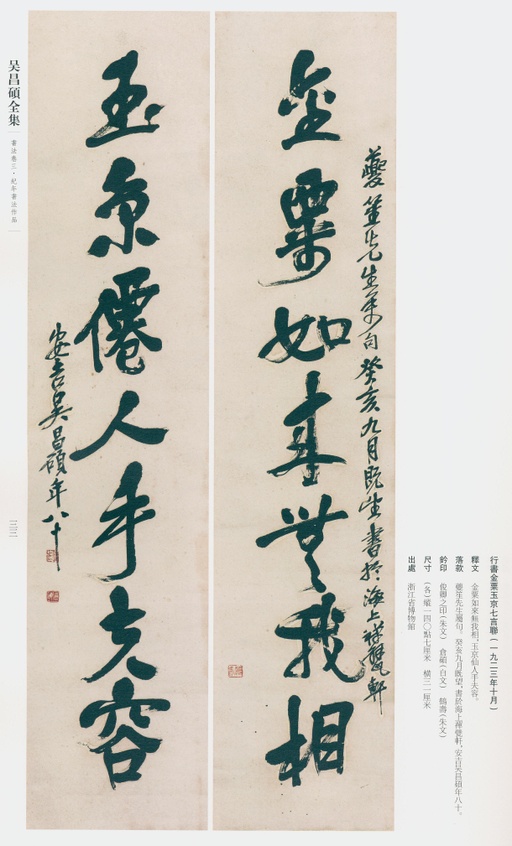 行書金粟玉京七言聯(一九二三年十月)
釋文 金粟如來無我相,玉京仙人手夫容。
落款 夔笙先生屬句。癸亥九月既望,書於海上禪甓軒,安吉吳昌碩年八十。
鈐印 俊卿之印(朱文) 倉碩(白文) 鶴壽(朱文)
尺寸 (各)縱一四〇點七厘米 橫三一厘米
出處 浙江省博物館
夔笙先生屬句 癸亥九月既生書於海上禪甓軒
金粟如來無我相
玉京僊人手夫容
安吉吳昌碩年八十
吴昌碩全集
書法卷三·紀年書法作品